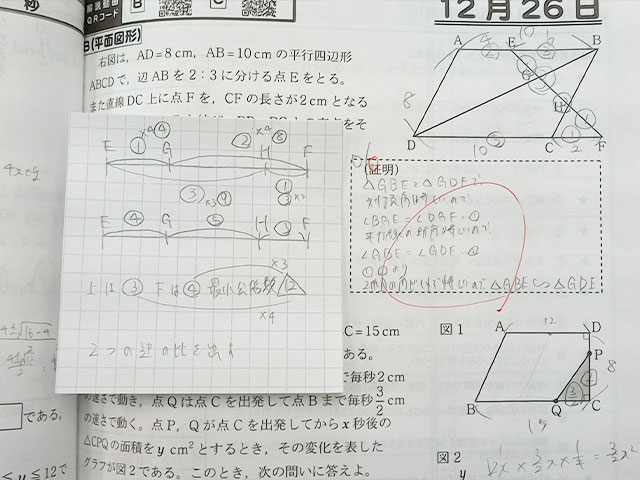 解説動画
QRコード
B
C
12月26日
B(平面図形)
右図は，AD＝8cm，AB＝10cmの平行四辺形
ABCDで，辺ABを2：3に分ける点Eをとる。
また直線DC上に点Fを，CFの長さが2cmとなる
A
E
B
8
G
H
D
10
C
2
F
E ① G ② H F
③
E ④ G ⑤ H ③ F
×3
上は③ 下は④ 最小公倍数 12
×4
2つの辺の比を出す
(証明)
△GBEと△GDFで、
対頂角は等しいので
∠BGE＝∠DGF…①
平行線の錯角は等しいので
①②より
2組の角がそれぞれ等しいので △GBE∽△GDF
C＝15cm
ある。
で毎秒2cm
の速さで動き，点Qは点Cを出発して点Bまで毎秒3/2cm
の速さで動く。点P，Qが点Cを出発してからx秒後の
△CPQの面積をy cm²とするとき，その変化を表した
グラフが図2である。このとき，次の問いに答えよ。
図1
A
12
D
P
8
B
Q
C
15
図2
y
である。
≦y≦12で